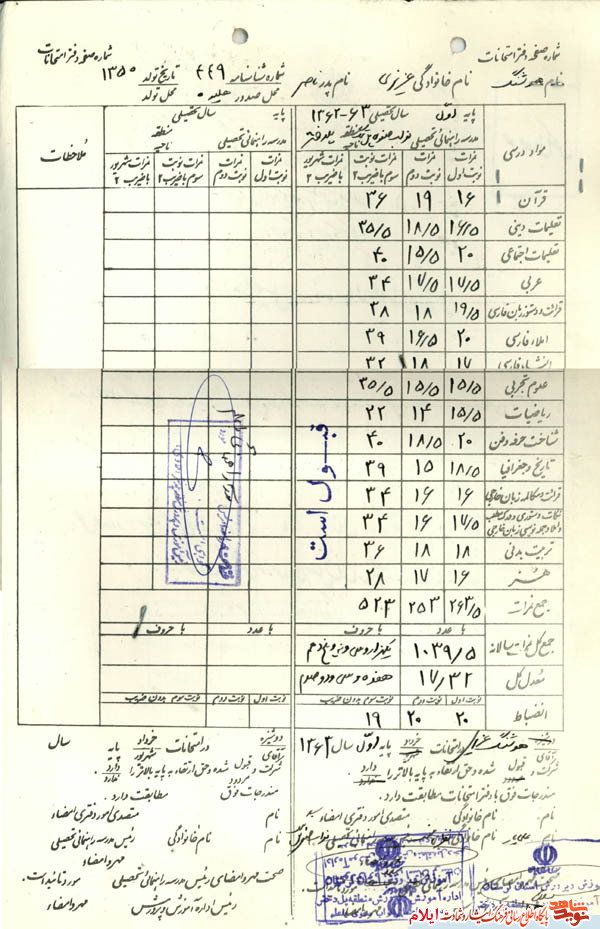 شماره صفحه دفتر امتحانات
شماره صفحه دفتر امتحانات
نام هوشنگ نام خانوادگی عزیزی نام پدر ناصر شماره شناسنامه ۴۴۹ تاریخ تولد ۱۳۵۰
محل صدور هلیله محل تولد
مواد درسی
پایه اول سال تحصیلی ۶۳-۱۳۶۲
پایه سال تحصیلی
ملاحظات
مدرسه راهنمائی تحصیلی منطقه پلدختر ناحیه
مدرسه راهنمائی تحصیلی منطقه ناحیه
نمرات نوبت اول نمرات نوبت دوم نمرات نوبت سوم با ضریب ۲ نمرات شهریور با ضریب ۲
نمرات نوبت اول نمرات نوبت دوم نمرات نوبت سوم با ضریب ۲ نمرات شهریور با ضریب ۲
قرآن ۱۶ ۱۹ ۳۶
تعلیمات دینی ۱۶/۵ ۱۸/۵ ۳۵/۵
تعلیمات اجتماعی ۲۰ ۱۵/۵ ۴۰
عربی ۱۷/۵ ۱۷/۵ ۳۴
قرائت و دستور زبان فارسی ۱۹/۵ ۱۸ ۳۸
املاء فارسی ۲۰ ۱۶/۵ ۳۹
انشاء فارسی ۱۷ ۱۸ ۳۲
علوم تجربی ۱۵/۵ ۱۵/۵ ۳۵/۵
ریاضیات ۱۵/۵ ۱۴ ۲۲
شناخت حرفه و فن ۲۰ ۱۸/۵ ۴۰
تاریخ و جغرافیا ۱۸/۵ ۱۵ ۳۹
قرائت و مکالمه زبان خارجی ۱۶ ۱۶ ۳۴
نکات دستوری و درک مطلب و املاء و جمله نویسی زبان خارجی ۱۷/۵ ۱۶ ۳۴
تربیت بدنی ۱۸ ۱۸ ۳۶
هنر ۱۶ ۱۷ ۲۸
جمع نمرات ۲۶۳/۵ ۲۵۳ ۵۲۳
قبول است
با عدد با حروف با عدد با حروف
جمع کل نمرات سالانه ۱۰۳۹/۵ یکهزار و سی و نه و پنج دهم
معدل کل ۱۷/۳۲ هفده و سی و دو صدم
نوبت اول نوبت دوم نوبت سوم بدون ضریب نوبت اول نوبت دوم نوبت سوم بدون ضریب
انضباط ۲۰ ۲۰ ۱۹
دوشیزه آقای هوشنگ عزیزی در امتحانات خرداد شهریور پایه اول سال ۱۳۶۳
شرکت و قبول شده و حق ارتقاء به پایه بالاتر را دارد ندارد
مندرجات فوق با دفتر امتحانات مطابقت دارد.
نام متصدی امور دفتری امضاء
نام نام خانوادگی
دوشیزه آقای در امتحانات خرداد شهریور پایه سال
شرکت و قبول مردود شده و حق ارتقاء به پایه بالاتر را دارد ندارد
مندرجات فوق مطابقت دارد.
نام متصدی امور دفتری امضاء
نام نام خانوادگی رئیس مدرسه راهنمائی تحصیلی
مهر و امضاء
صحت مهر و امضای رئیس مدرسه راهنمائی تحصیلی مورد تائید است.
رئیس اداره آموزش و پرورش مهر و امضاء
نوید شاهد
پایگاه اطلاع رسانی فرهنگ ایثار و شهادت ایلام